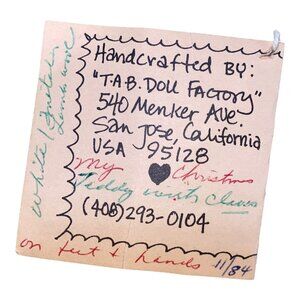 Handcrafted By:
"T.A.B. Doll Factory"
540 Menker Ave.
San Jose, California
USA 95128
My Christmas
Teddy with Claws
(408) 293-0104
on feet & hands 11/84
White/